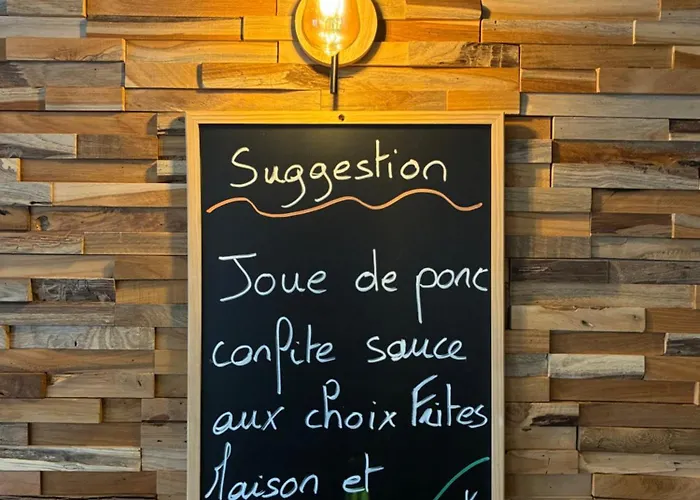 Suggestion
Joue de porc
confite sauce
aux choix Frites
Maison et